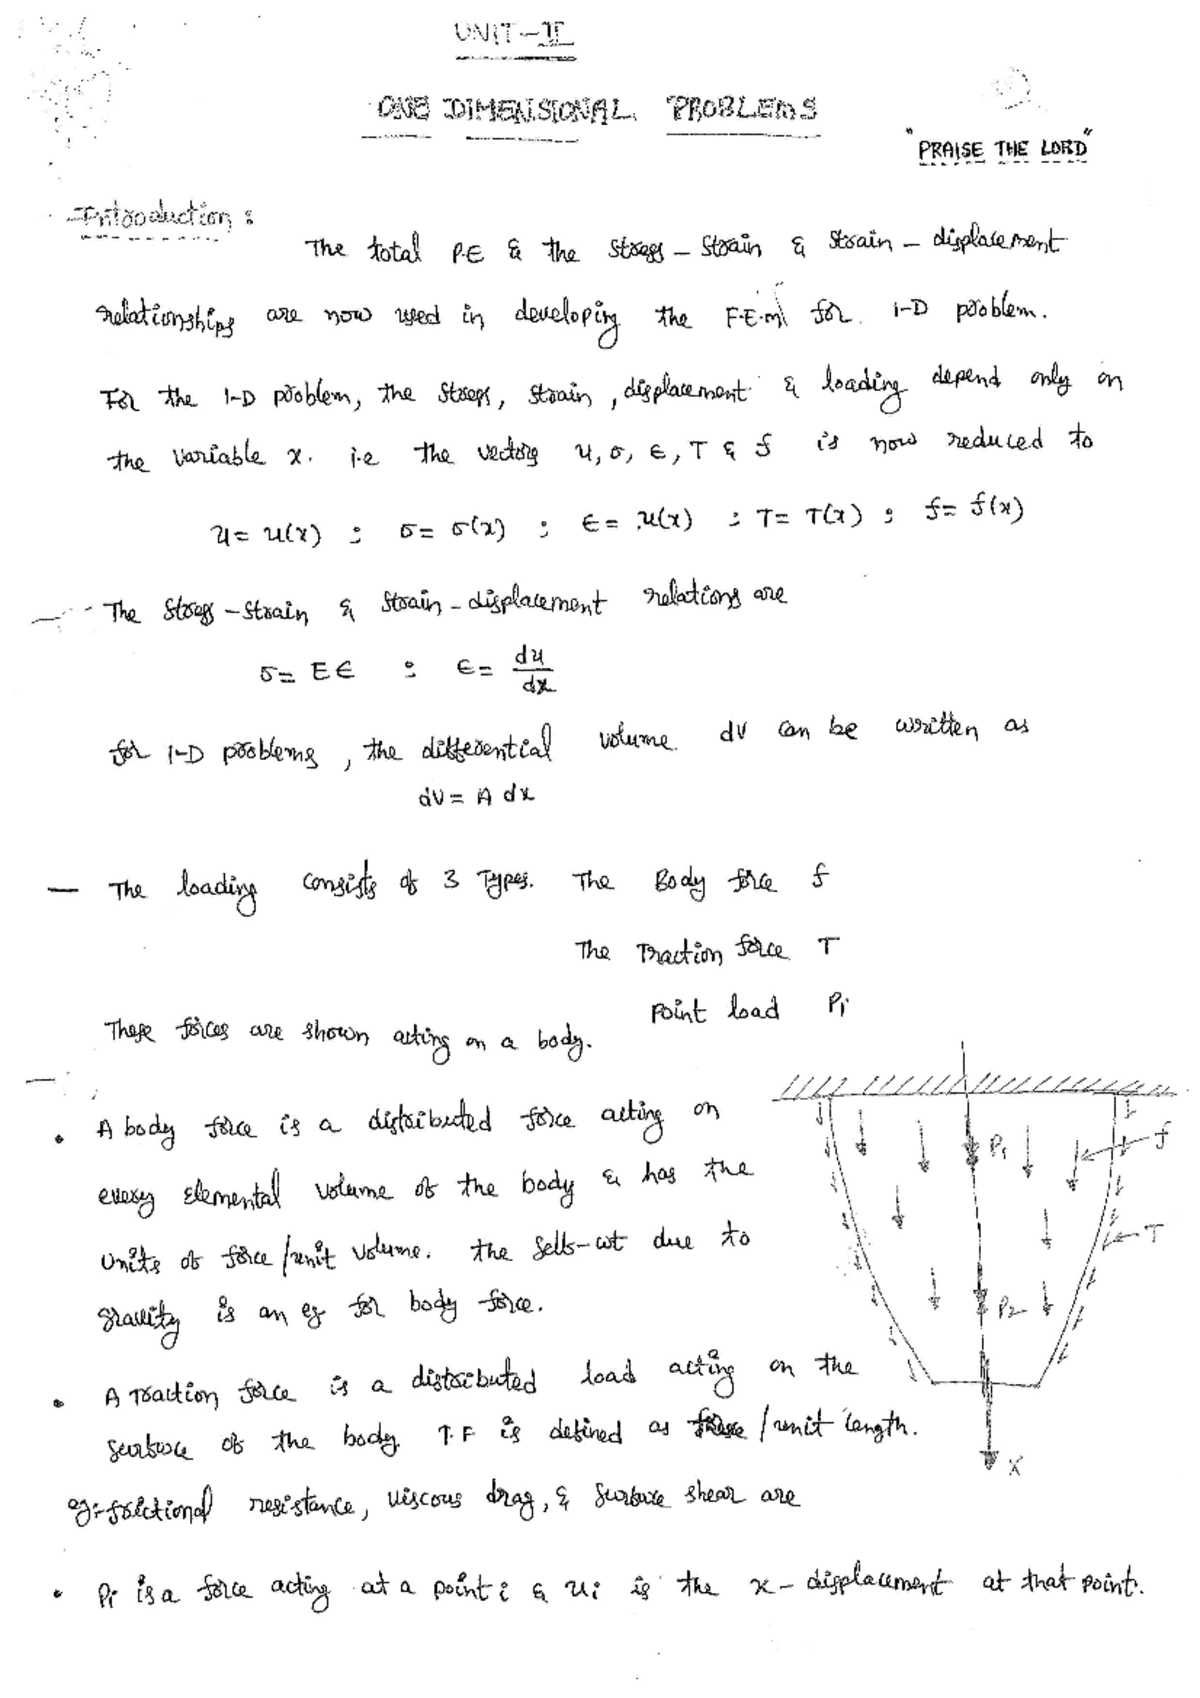 UNIT-II
ONE DIMENSIONAL PROBLEMS
"PRAISE THE LORD"
Introduction :
The total P.E & the stress-strain & strain-displacement
relationships are now used in developing the F.E.m for 1-D problem.
For the 1-D problem, the stress, strain, displacement & loading depend only on
the variable x. i.e the vectors u, σ, ε, T & f is now reduced to
u = u(x) ; σ = σ(x) ; ε = u(x) ; T = T(x) ; f = f(x)
The stress-strain & strain-displacement relations are
σ = Eε ; ε = du/dx
for 1-D problems, the differential volume dv can be written as
dv = A dx
— The loading consists of 3 Types. The Body force f
The Traction force T
Point load Pi
These forces are shown acting on a body.
• A body force is a distributed force acting on
every elemental volume of the body & has the
units of force/unit volume. the self-wt due to
gravity is an eg for body force.
• A Traction force is a distributed load acting on the
surface of the body. T.F is defined as force/unit length.
eg:- frictional resistance, viscous drag, & surface shear are
• Pi is a force acting at a point i & ui is the x-displacement at that point.
P1
f
T
P2
x